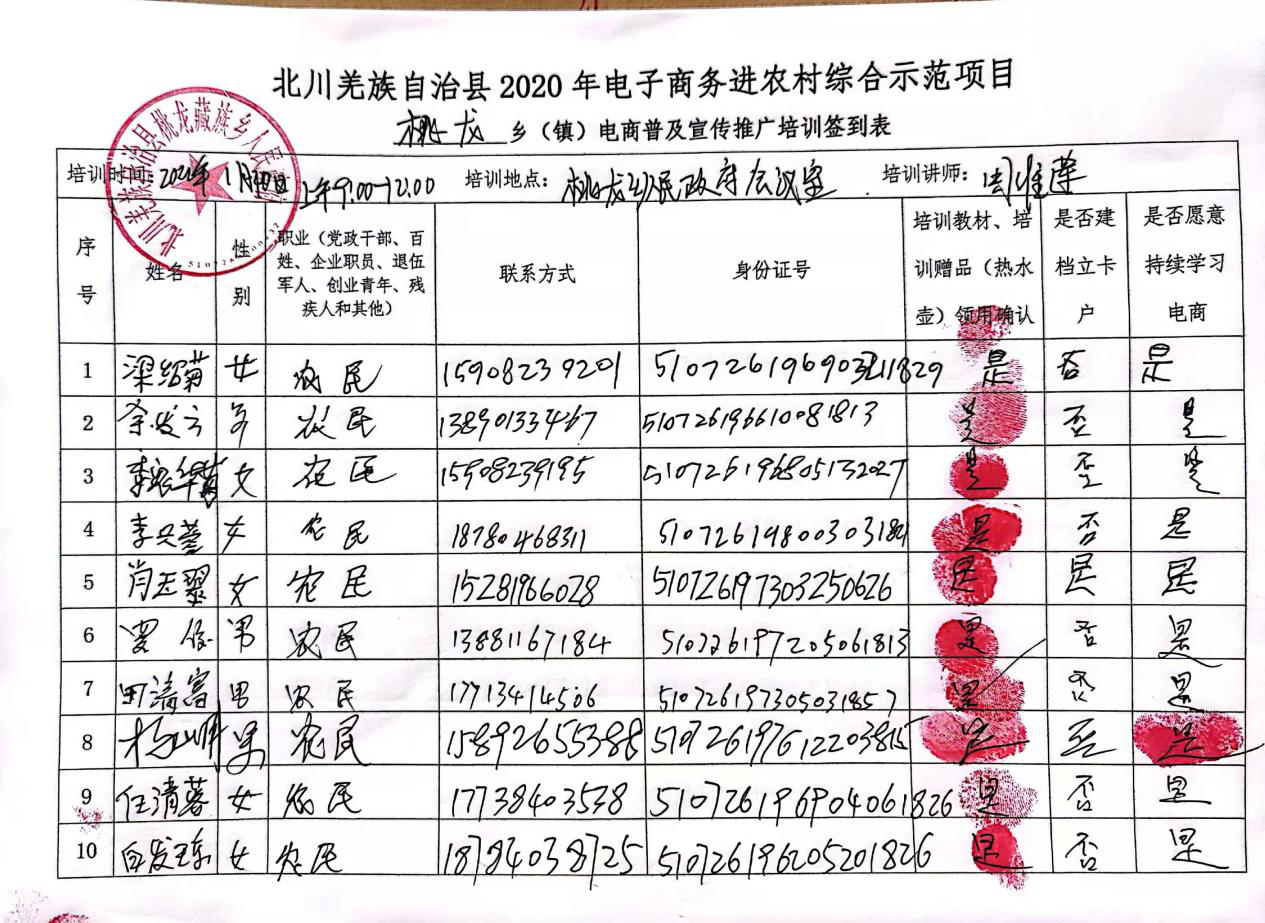 北川羌族自治县 2020 年电子商务进农村综合示范项目
桃龙 乡（镇）电商普及宣传推广培训签到表
北川羌族自治县桃龙藏族乡人民
培训时间：2021年1月 日上午9:00-12:00 培训地点：桃龙乡人民政府会议室 培训讲师：
序号 姓名 性别 职业（党政干部、百姓、企业职员、退伍军人、创业青年、残疾人和其他） 联系方式 身份证号 培训教材、培训赠品（热水壶）领用确认 是否建档立卡户 是否愿意持续学习电商
1 梁绍菊 女 农民 15908239201 是 否 是
2 余发云 男 农民 13890133467 510726196610081813 是 否 是
3 女 农民 15908239195 510726196805132027 是 否 是
4 李兴蓉 女 农民 18780468311 是 否 是
5 肖玉翠 女 农民 15281966028 510726197303250626 是 是 是
6 男 农民 13881167184 510726197205061813 是 否 是
7 田清富 男 农民 17713414506 510726197305031857 是 否 是
8 男 农民 15892655388 是 否 是
9 任清蓉 女 农民 17738403538 510726196904061826 是 否 是
10 女 农民 18784038725 510726196205201826 是 否 是